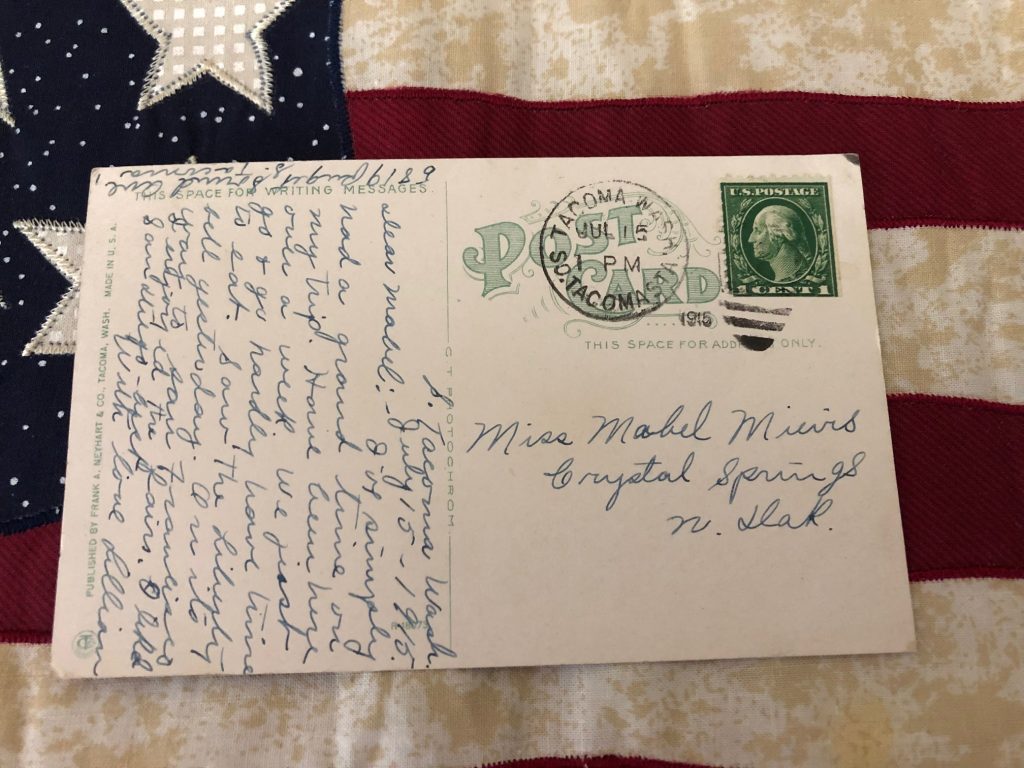 THIS SPACE FOR WRITING MESSAGES.
6819 Puget Sound Ave,
S. Tacoma
S. Tacoma Wash.
July 15 - 1915.
Dear Mabel:- I've simply
had a grand time on
my trip. Have been here
over a week. We just
go & go hardly have time
to eat. Saw the Liberty
bell yesterday. On its
way to San Francisco
I enjoyed the
San Diego best fairs.
With love Lillian
PUBLISHED BY FRANK A. NEYHART & CO., TACOMA, WASH. MADE IN U.S.A.
C T PHOTOCHROM
POST CARD
TACOMA WASH.
JUL 15
1 PM
SO. TACOMA STA.
1915
U.S. POSTAGE
1 CENT 1
THIS SPACE FOR ADDRESS ONLY.
Miss Mabel Mievis
Crystal Springs
N. Dak.